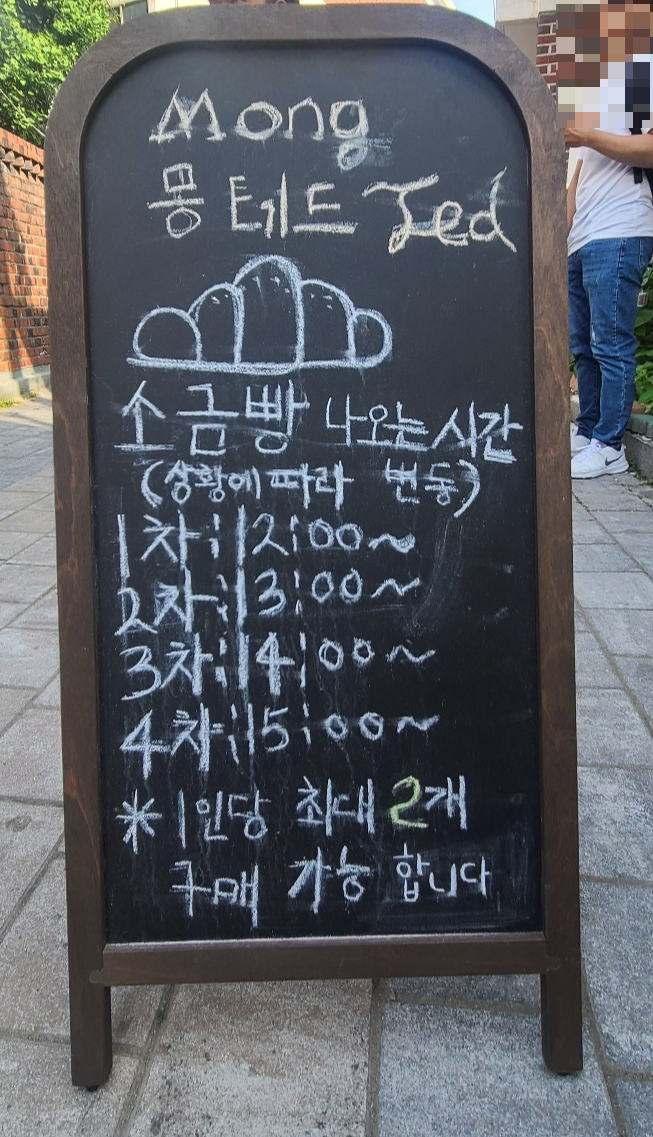 Mong
몽 테드 Ted
소금빵 나오는 시간
(상황에 따라 변동)
1차: 12:00~
2차: 13:00~
3차: 14:00~
4차: 15:00~
* 1인당 최대 2개
구매 가능 합니다